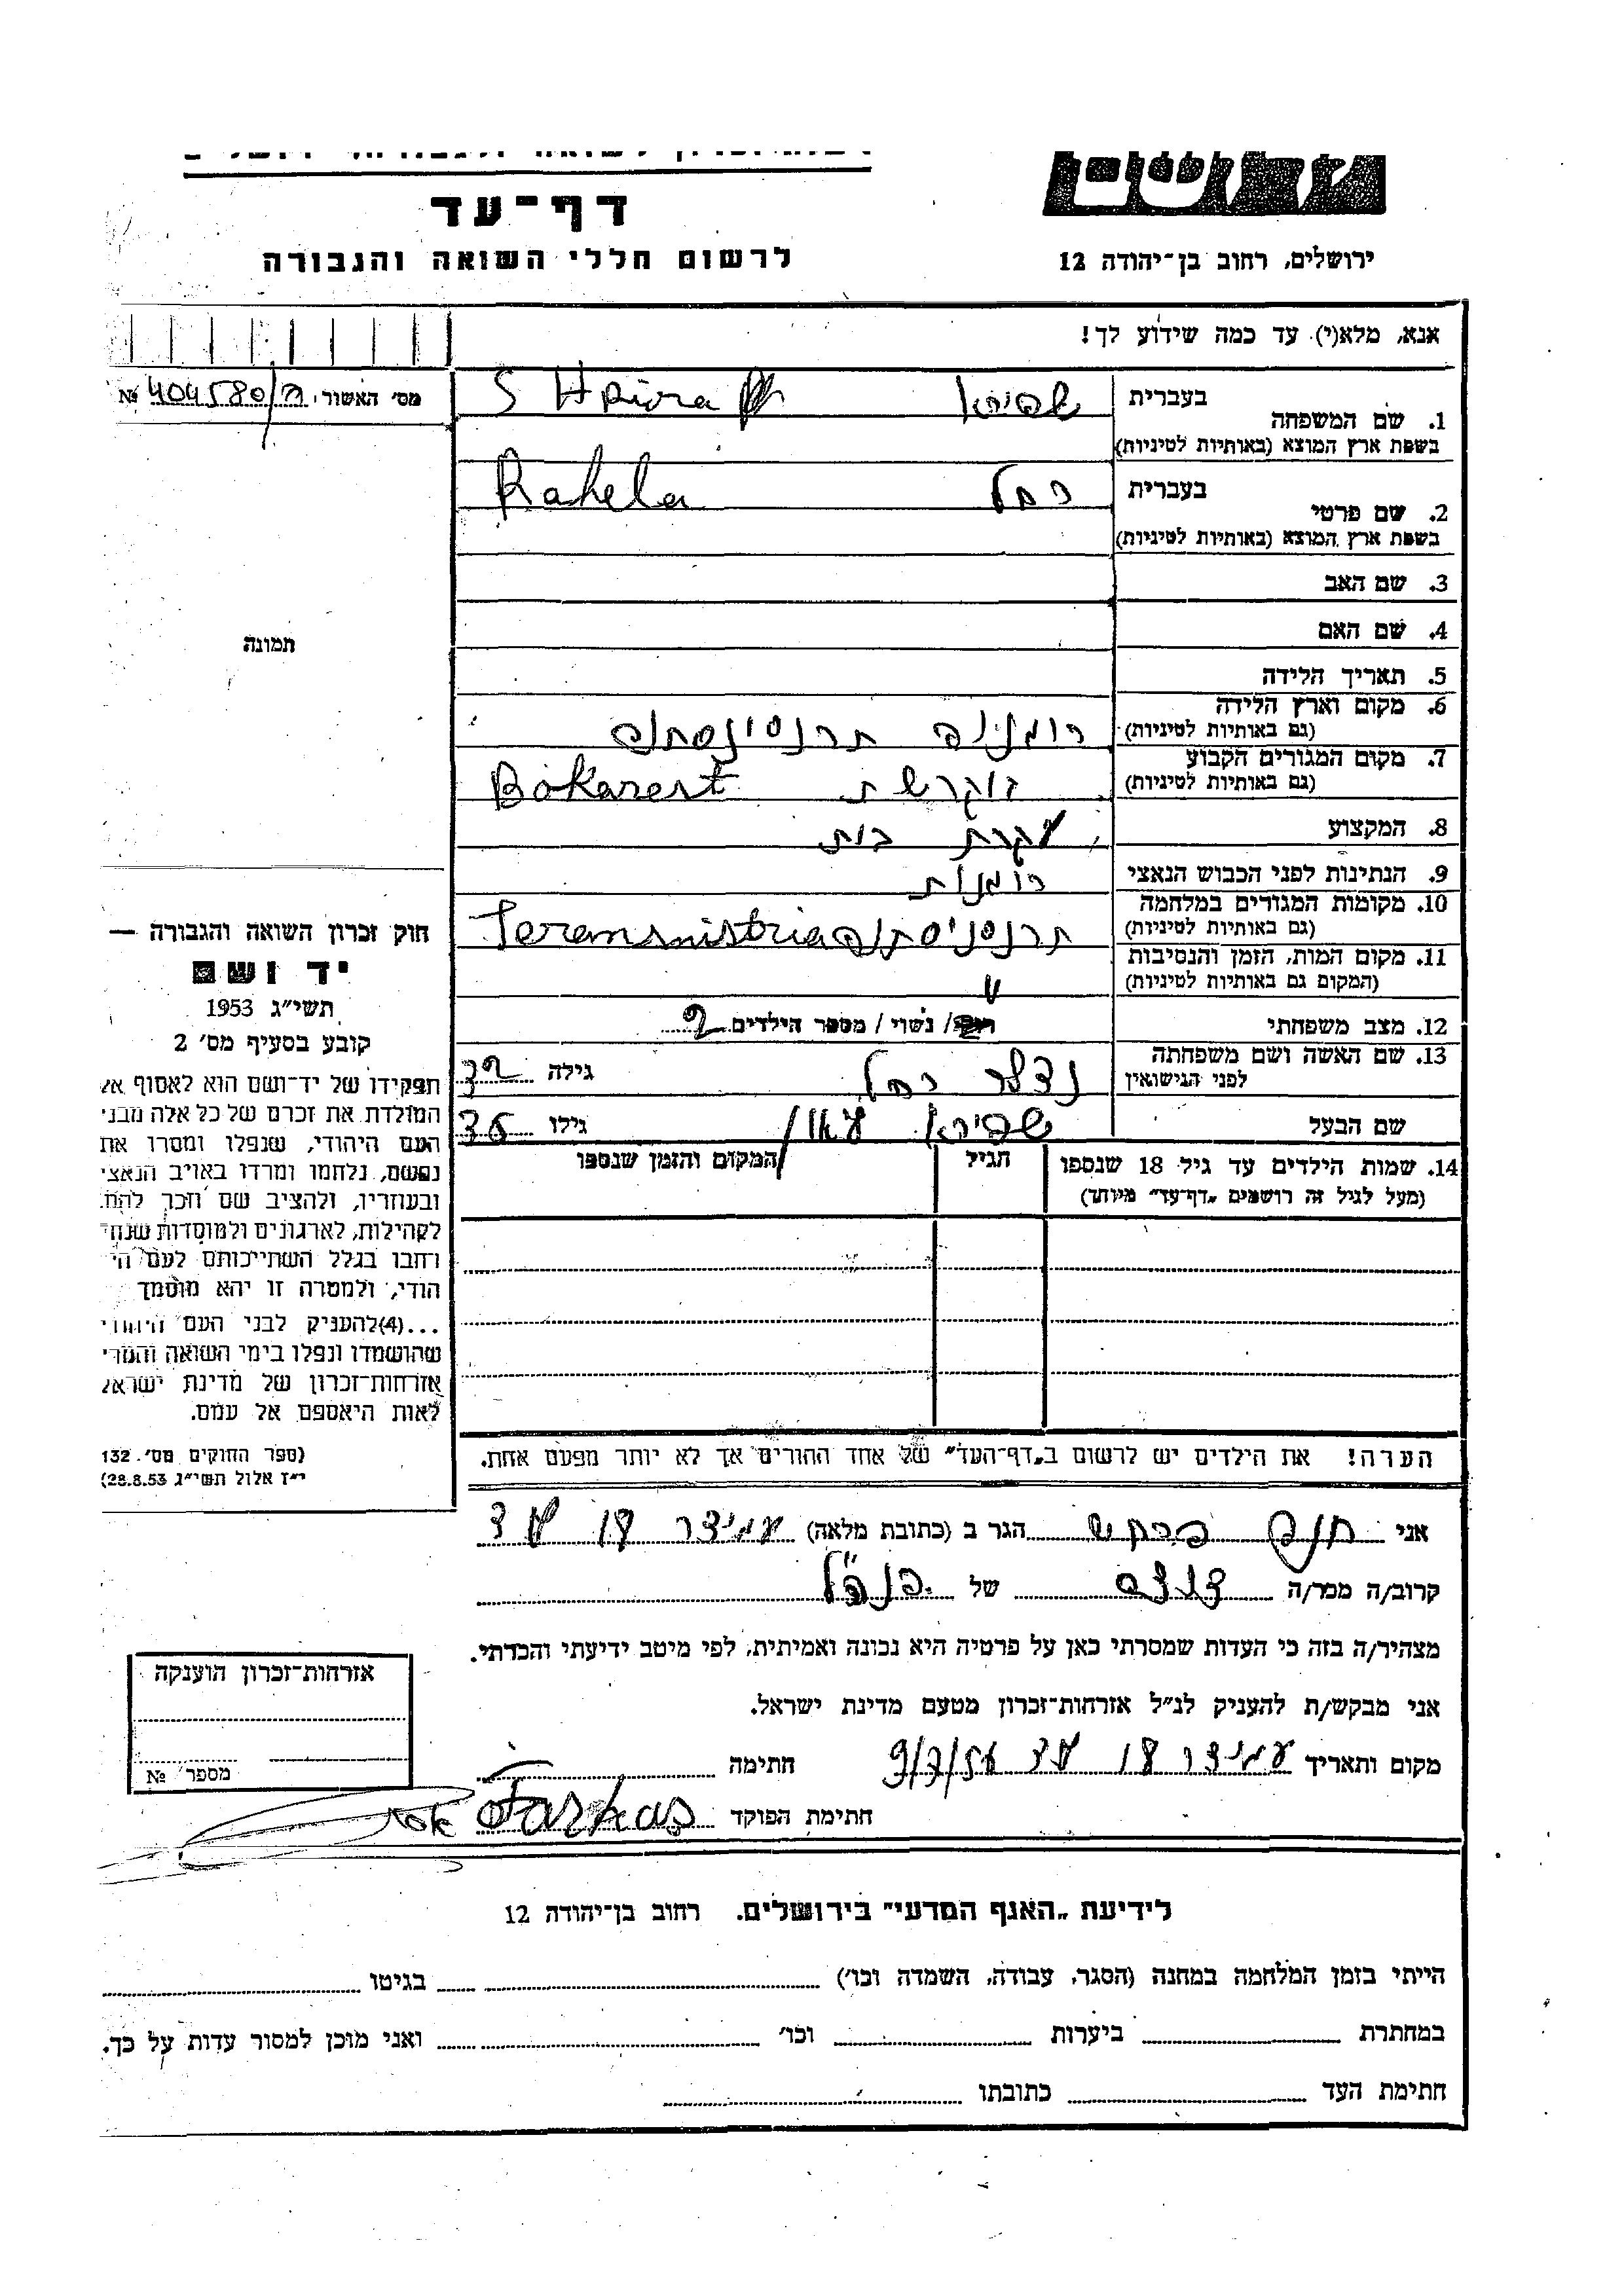 דף-עד
לרשום חללי השואה והגבורה
ירושלים, רחוב בן-יהודה 12
אנא, מלא(י) עד כמה שידוע לך!
מס' האשור, № 404580/ה
1. שם המשפחה בעברית שפירא SHpira
בשפת ארץ המוצא (באותיות לטיניות)
2. שם פרטי בעברית רחל Rahela
בשפת ארץ המוצא (באותיות לטיניות)
3. שם האב
4. שם האם
תמונה
5. תאריך הלידה
6. מקום וארץ הלידה
(גם באותיות לטיניות) רומניה
7. מקום המגורים הקבוע
(גם באותיות לטיניות) בוקרשת Bokarest
8. המקצוע עקרת בית
9. הנתינות לפני הכבוש הנאצי רומנית
10. מקומות המגורים במלחמה
(גם באותיות לטיניות) תרנסניסתריה
11. מקום המות, הזמן והנסיבות
(המקום גם באותיות לטיניות)
12. מצב משפחתי / נשוי / מספר הילדים 2
13. שם האשה ושם משפחתה
לפני הנישואין רחל גילה 32
שם הבעל שפירא גילו 36
14. שמות הילדים עד גיל 18 שנספו הגיל המקום והזמן שנספו
(מעל לגיל זה רושמים "דף-עד" מיוחד)
הערה! את הילדים יש לרשום ב"דף-העד" של אחד ההורים אך לא יותר מפעם אחת.
חוק זכרון השואה והגבורה —
יד ושם
תשי"ג 1953
קובע בסעיף מס' 2
תפקידו של יד-ושם הוא לאסוף אל
המולדת את זכרם של כל אלה מבני
העם היהודי, שנפלו ומסרו את
נפשם, נלחמו ומרדו באויב הנאצי
ובעוזריו, ולהציב שם וזכר להם,
לקהילות, לארגונים ולמוסדות שנח-
רבו בגלל השתייכותם לעם הי-
הודי, ולמטרה זו יהא מוסמך
...(4) להעניק לבני העם היהודי
שהושמדו ונפלו בימי השואה והמרי
אזרחות-זכרון של מדינת ישראל
לאות היאספם אל עמם.
(ספר החוקים מס'. 132
י"ז אלול תשי"ג 28.8.53)
אני חנה פרקש הגר ב (כתובת מלאה) עמידר 18
קרוב/ה מכר/ה דודה של הנ"ל
מצהיר/ה בזה כי העדות שמסרתי כאן על פרטיה היא נכונה ואמיתית, לפי מיטב ידיעתי והכרתי.
אני מבקש/ת להעניק לנ"ל אזרחות-זכרון מטעם מדינת ישראל.
מקום ותאריך עמידר 18 9/7/56 חתימה
חתימת הפוקד Farkas
אזרחות-זכרון הוענקה
מספר №
לידיעת "האגף המדעי" בירושלים. רחוב בן-יהודה 12
הייתי בזמן המלחמה במחנה (הסגר, עבודה, השמדה וכו') בגיטו
במחתרת ביערות וכו' ואני מוכן למסור עדות על כך.
חתימת העד כתובתו